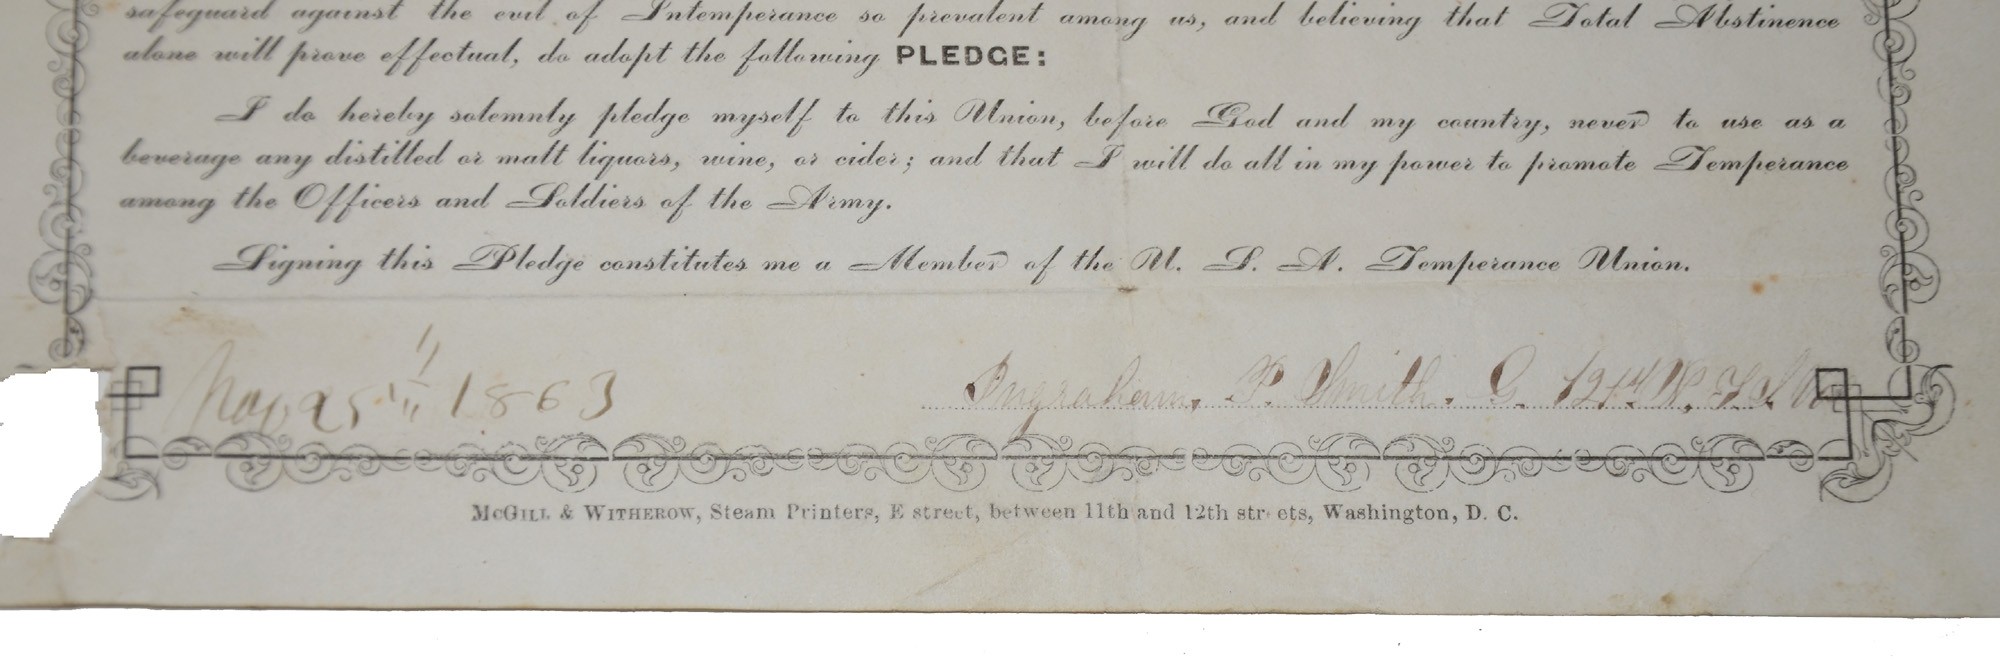 safeguard against the evil of Intemperance so prevalent among us, and believing that Total Abstinence
alone will prove effectual, do adopt the following PLEDGE:
I do hereby solemnly pledge myself to this Union, before God and my country, never to use as a
beverage any distilled or malt liquors, wine, or cider; and that I will do all in my power to promote Temperance
among the Officers and Soldiers of the Army.
Signing this Pledge constitutes me a Member of the U. S. A. Temperance Union.
Nov 25th 1863
Ingraham. P. Smith. G. 12th
McGill & Witherow, Steam Printers, E street, between 11th and 12th streets, Washington, D. C.